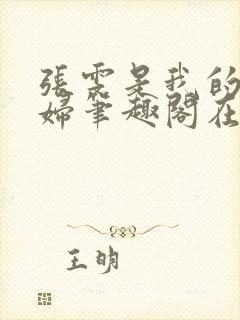 張雲是我的
婦筆趣閣在
王明